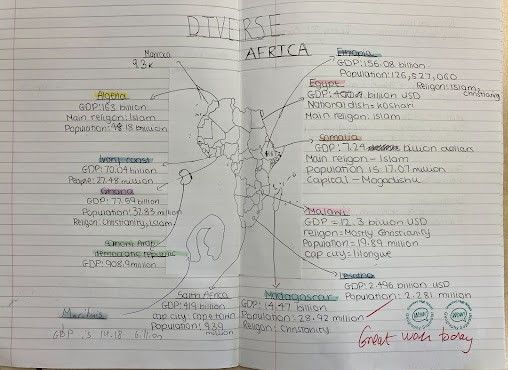 DIVERSE
AFRICA
Morocco
93K
Algeria
GDP: 163 billion
Main religon: Islam
Population:
Ivory coast
GDP: 70.04 billion
People: 27.48 million
Ghana
GDP: 77.59 billion
Population: 32.83 million
Religon: Christianity, Islam
democratic republic
GDP: 908.9 million
GDP is 14.18 billion
South Africa
GDP: 419 billion
cap city: Cape town
Population:
million
Ethiopia
GDP: 156.08 billion
Population: 126,527,060
Religon: Islam,
Christianity
Egypt
GDP: billion USD
National dish = Koshari
Main religon: Islam
Somalia
GDP: 7.24 billion dollars
Main religon - Islam
Population is 17.07 million
Capital - Mogadishu
Malawi
GDP = 12.3 billion USD
religon = Mostly Christianity
Population = 19.89 million
Cap city = Lilongue
Lesotho
GDP: 2.496 billion USD
Population: 2.281 million
Madagascar
GDP: 14.47 billion
Population: 28.92 million
Religon: Christianity
WOW!
WOW!
Great work today